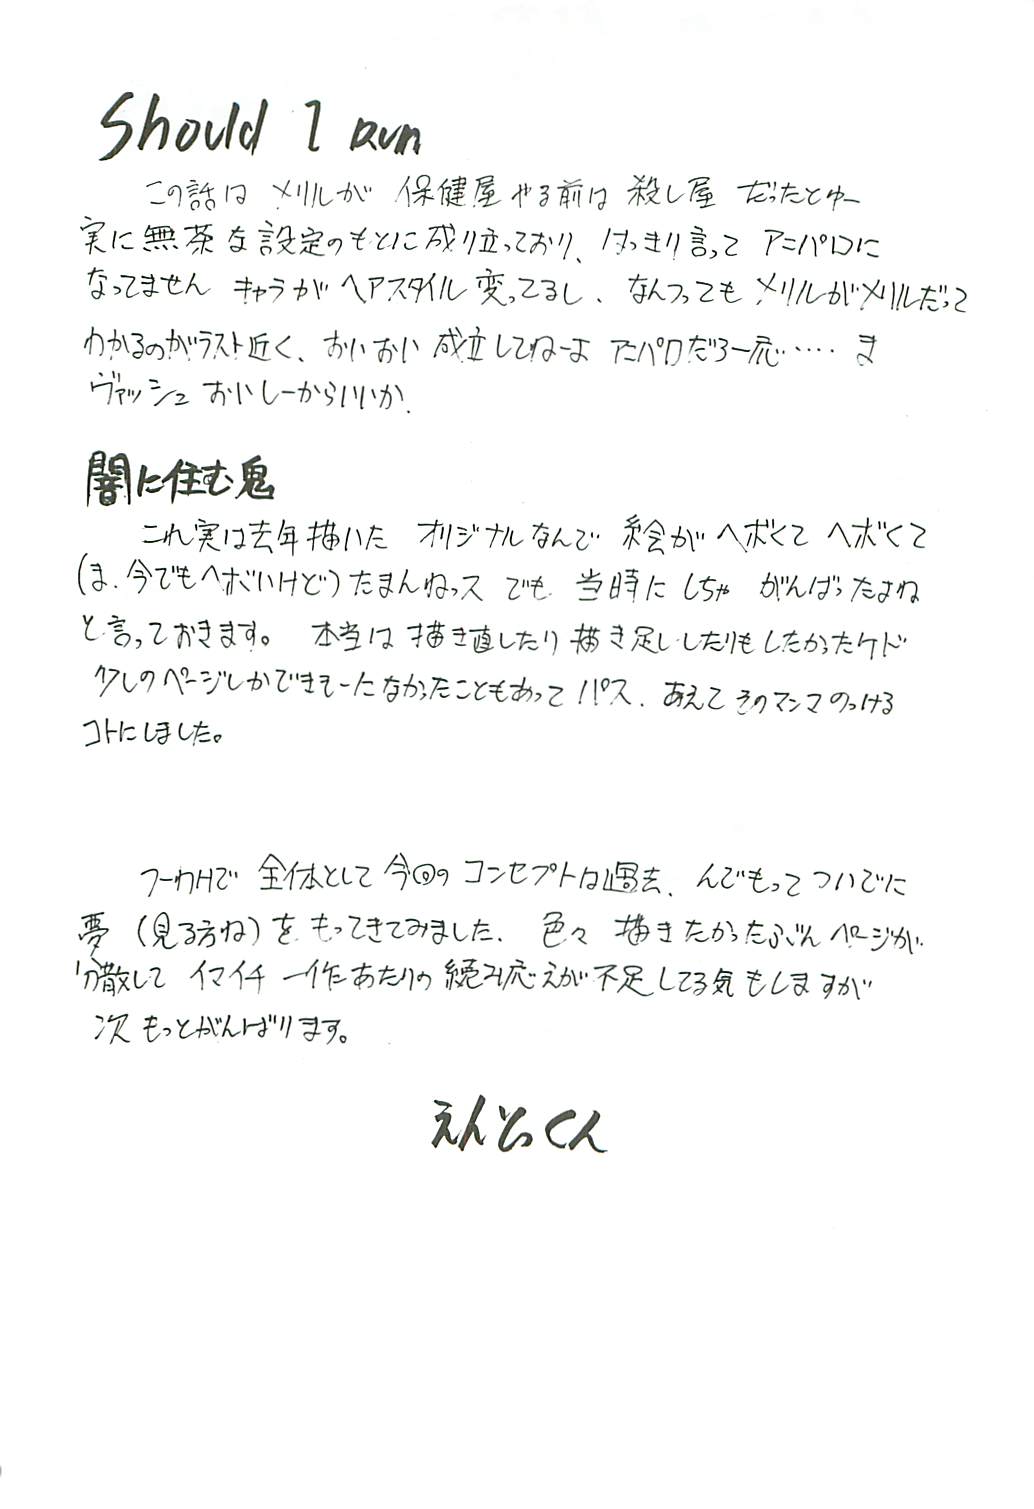 Should I Run
この話は メリルが 保健屋やる前は 殺し屋 だったとゆー
実に無茶な設定のもとに成り立っており、はっきり言って アニパロに
なってません キャラがヘアスタイル変ってるし、なんつってもメリルがメリルだって
わかるのがラスト近く、おいおい 成立してねーよ アニパロだろ一応‥‥ ま
ヴァッシュおいしーからいいか.
闇に住む鬼
これ実は去年描いた オリジナルなんで 絵がヘボくて ヘボくて
(ま、今でもヘボいけど)たまんねっス でも 当時に しちゃ がんばったよね
と言っておきます。 本当は描き直したり描き足ししたりもしたかったケド
少しのページしかできそーになかったこともあって パス. あえてそのマンマのっける
コトにしました。
つーわけで 全体として今回のコンセプトは過去、んでもってついでに
夢 (見る方ね)を もってきてみました、 色々 描きたかったぶん ページが
分散して イマイチ 一作あたりの 読み応えが不足してる気もしますが
次 もっとがんばります。
えんどくん